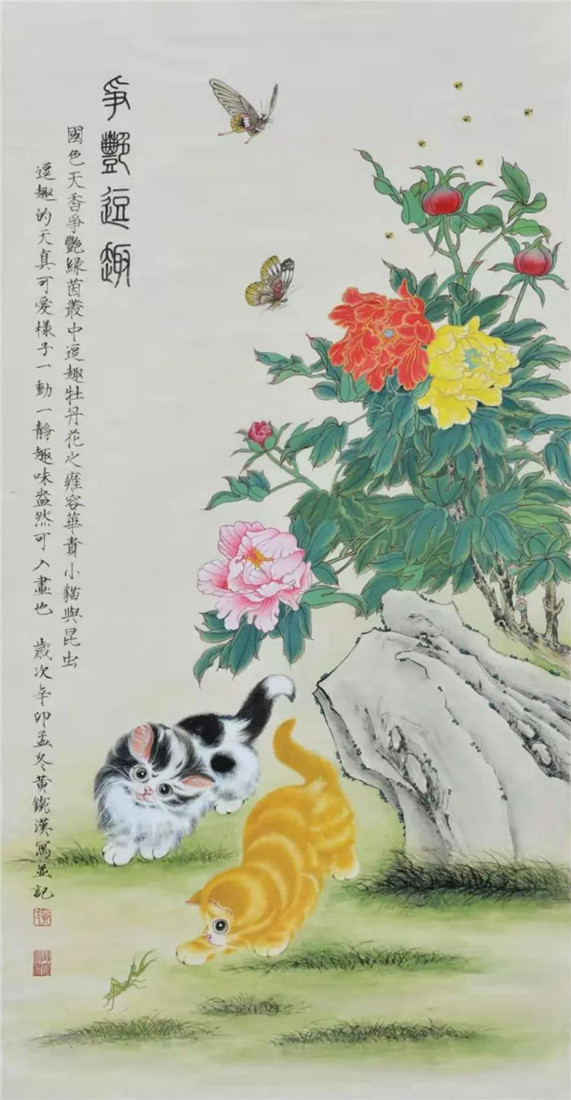 爭艷逗趣
國色天香爭艷綠茵叢中逗趣牡丹花之雍容華貴小貓與昆虫
逗趣的天真可愛樣子一動一靜趣味盎然可入畫也　歲次辛卯孟冬黃鐵漢寫並記